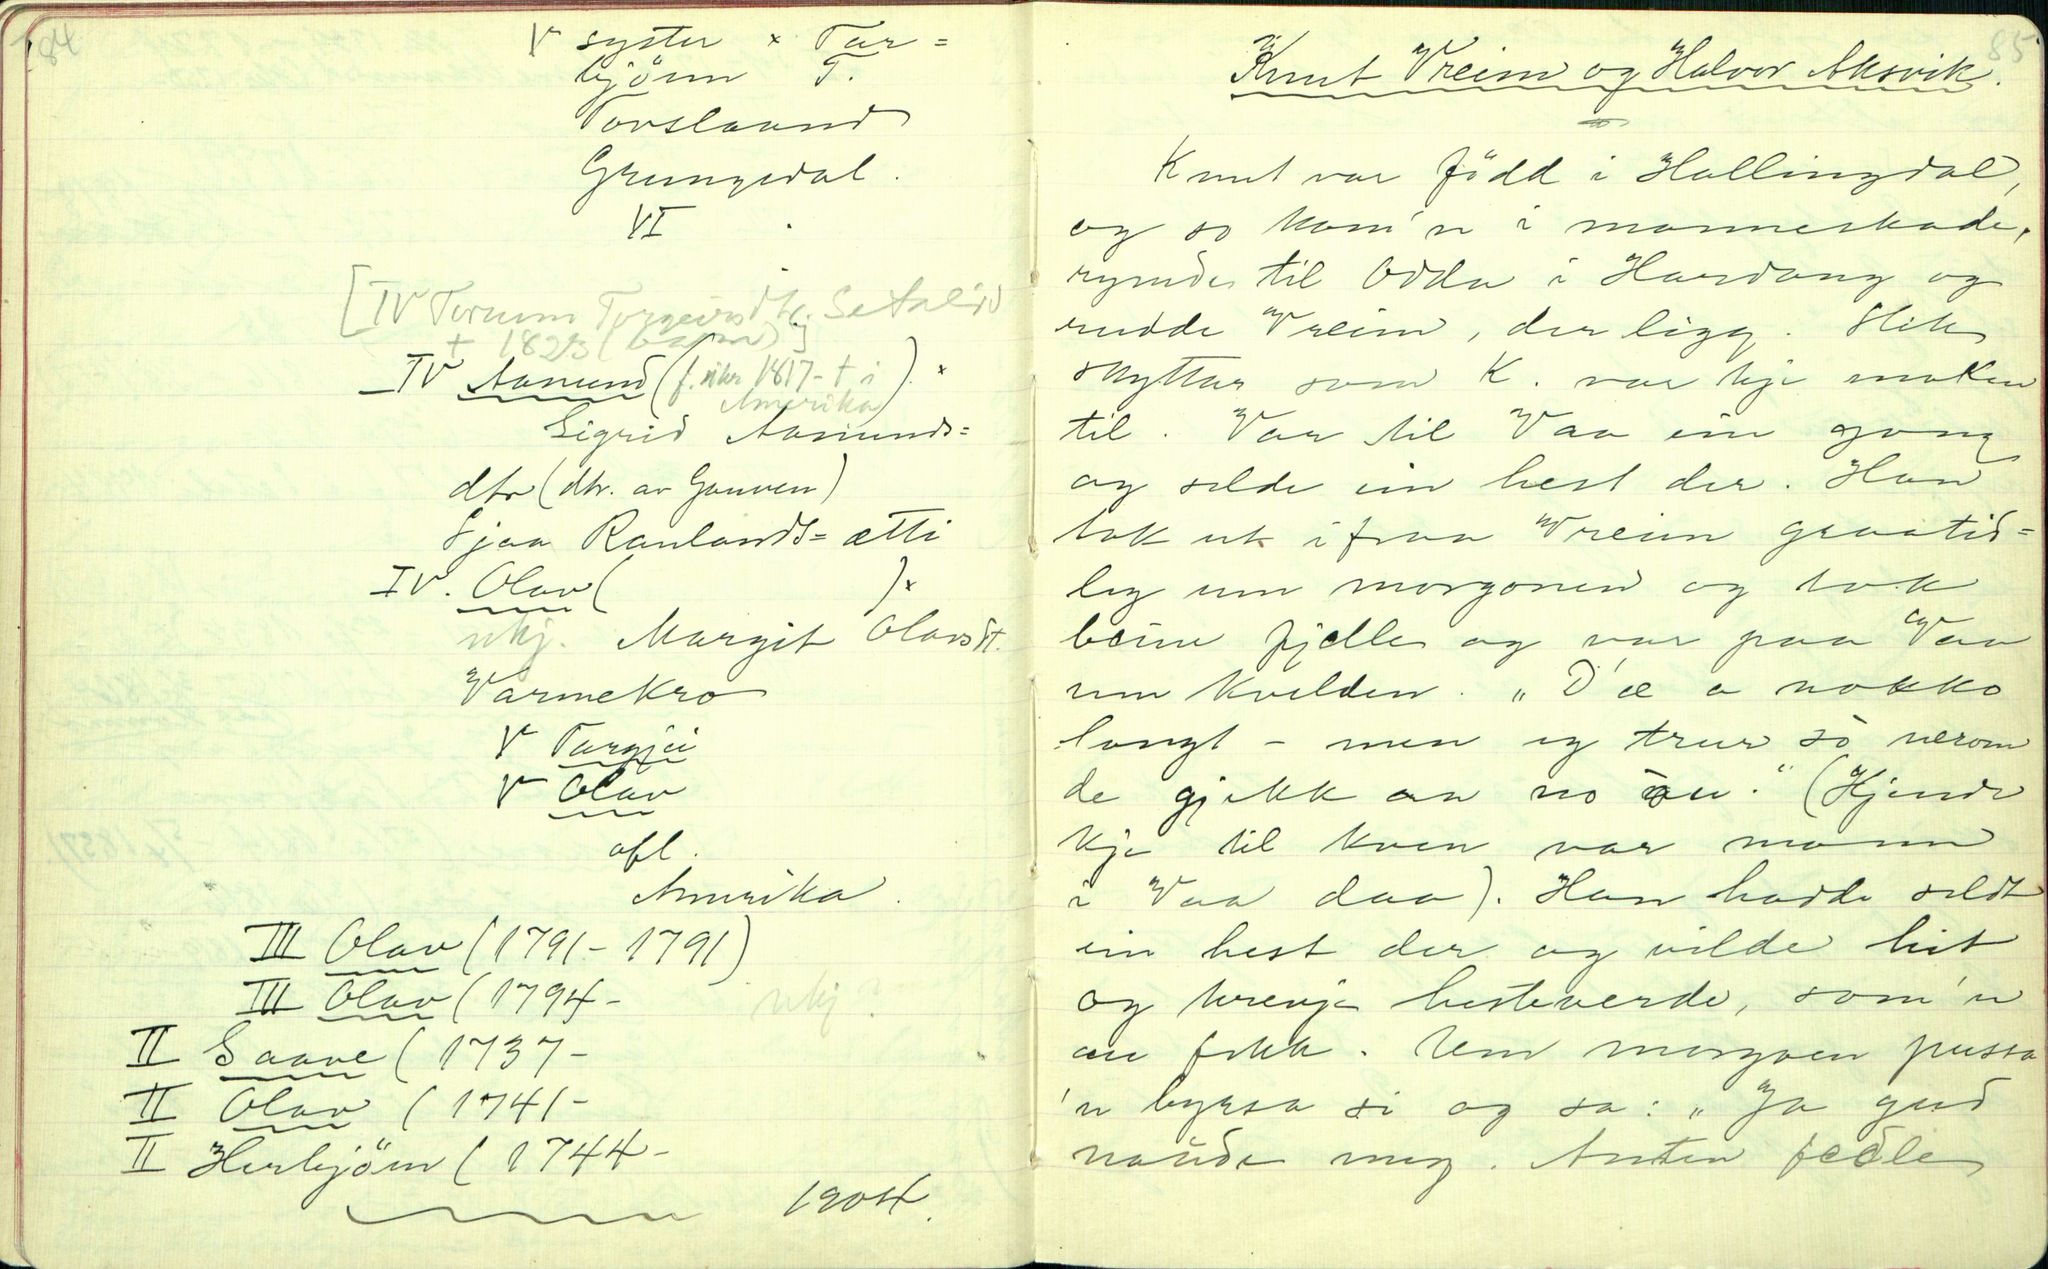 84
V syster × Tar=
bjönn T.
Torslaand
Grungedal.
VI
[IV Torunn Torgeirsdtr. Setalid
+ 1823 (barn)]
IV Aamund (f. ikr 1817 - + i
Amerika) ×
Sigrid Aamunds=
dtr (dtr. av Gonven)
Sjaa Raulands=ætti
IV. Olav ( )×
ukj. Margit Olavsdt.
Varmekro
V Targjei
V Olav
afl.
Amerika.
III Olav (1791 - 1791)
III Olav (1794 - ukj?
II Saave (1737 -
II Olav (1741 -
II Herbjönn (1744 -
1904.
85
Knut Vreim og Halvor Aksvik.
Knut var född i Hallingdal,
og so kom'n i manneskade,
rymde til Odda i Hardang og
rudde Vreim, der ligg. Slik
skyttar som K. var kje maken
til. Var til Vaa ein gong
og selde ein hest der. Han
tok ut ifraa Vreim graatid=
leg um morgonen og tok
beine fjelle og var paa Vaa
um kvelden. „D'æ a nokko
langt - men eg trur so nerom
de gjekk an no au." (Kjende
kje til kven var mann
i Vaa daa). Han hadde seldt
ein hest der og vilde hit
og krevje hesteverde, som'n
au fekk. Um morgoen pussa
'n byrsa si og sa: „Ja gud
naade meg. Anten fedle